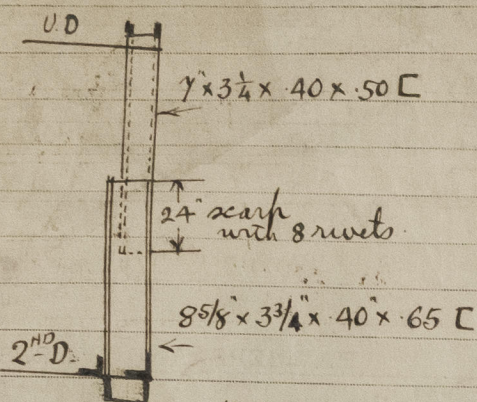 U.D
7" x 3 1/4 x .40 x .50 [
24" scarph
with 8 rivets.
8 5/8" x 3 3/4" x .40" x .65 [
2ND D.